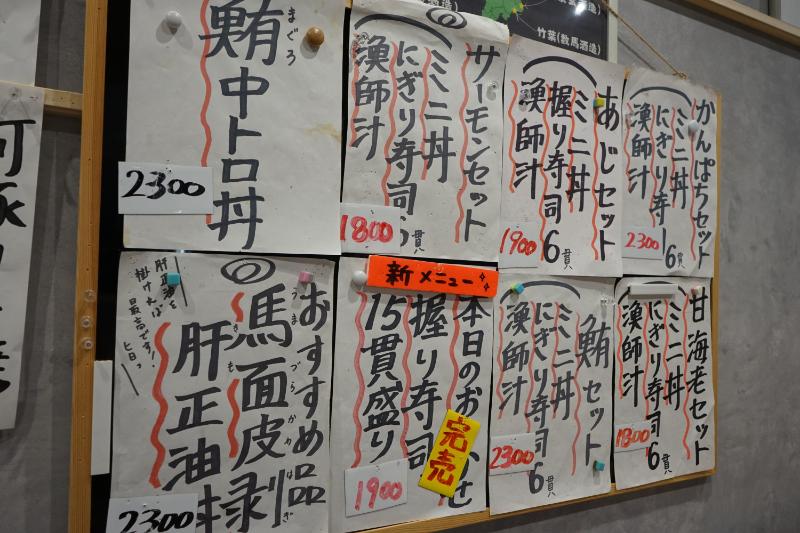 竹葉(数馬酒造)
かんぱちセット
ミニ丼
にぎり寿司6貫
漁師汁
2300
あじセット
ミニ丼
握り寿司6貫
漁師汁
1900
サーモンセット
ミニ丼
にぎり寿司6貫
漁師汁
1800
まぐろ
鮪中トロ丼
2300
甘海老セット
ミニ丼
にぎり寿司6貫
漁師汁
1800
鮪セット
ミニ丼
にぎり寿司6貫
漁師汁
2300
新メニュー
本日のお
かせ
握り寿司
15貫盛り
完売
1900
おすすめ品
うまづらかわはぎ
馬面皮剥
きも
肝正油
2300
肝正油を
掛ければ
最高です!